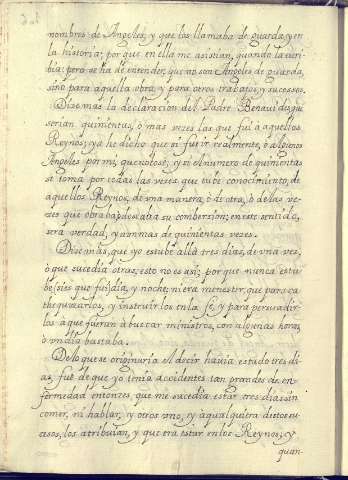 nombres de Angeles, y que los llamaba de guarda, y en
la historia; porque en ella me asistian, quando la escri-
bia: pero se ha de entender, que no son Angeles de guarda,
sino para aquella obra, y para otros trabajos, y sucessos.
Dise mas la declaracion del Padre Benavides, que
serian quinientas, o mas vezes las que fui a aquellos
Reynos; ya he dicho que si fui ir realmente, o algunos
Angeles por mi, que no lo sè; y si el numero de quinientas
se toma por todas las vezes, que tube conocimiento, de
aquellos Reynos, de vna manera, ò de otra, ò de las ve-
zes que obraba, deseaba su combersion; en este sentido,
sera verdad, y aun mas de quinientas vezes.
Dise mas, que yo estube allà tres dias, de vna vez,
ò que sucedia otras, esto no es asi; porque nunca esta-
be (si es que fui) dia, y noche; ni era menester, que para ca-
thequizarlos, y instruirlos en la fè, y para persuadir-
los à que fueran à buscar ministros, con algunas horas,
ò vn dia bastaba.
De lo que se originaria el decir havia estado tres di-
as, fue de que yo tenia accidentes tan grandes de en-
fermedad entonces, que me sucedia estar tres dias sin
comer, ni hablar, y otros vno, y à qualquiera destos su-
cesos, los atribuian, y que era estar en los Reynos; y
quan-